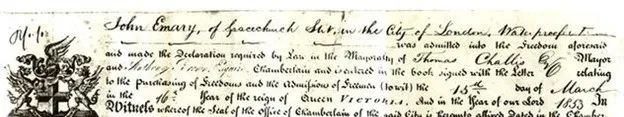 John Emary, of Gracechurch Strt, in the City of London, Waterproofer
was admitted into the Freedom aforesaid
and made the Declaration required by Law in the Mayoralty of Thomas Challis Esq Mayor
and Anthony Brown Esquire Chamberlain and is entered in the book signed with the Letter relating
to the Purchasing of Freedoms and the Admissions of Freemen (to wit) the 15th day of March
in the 16th Year of the reign of Queen VICTORIA. And in the Year of our Lord 1853 In
Witness whereof the Seal of the Office of Chamberlain of the said City is hereunto affixed Dated in the Chamber